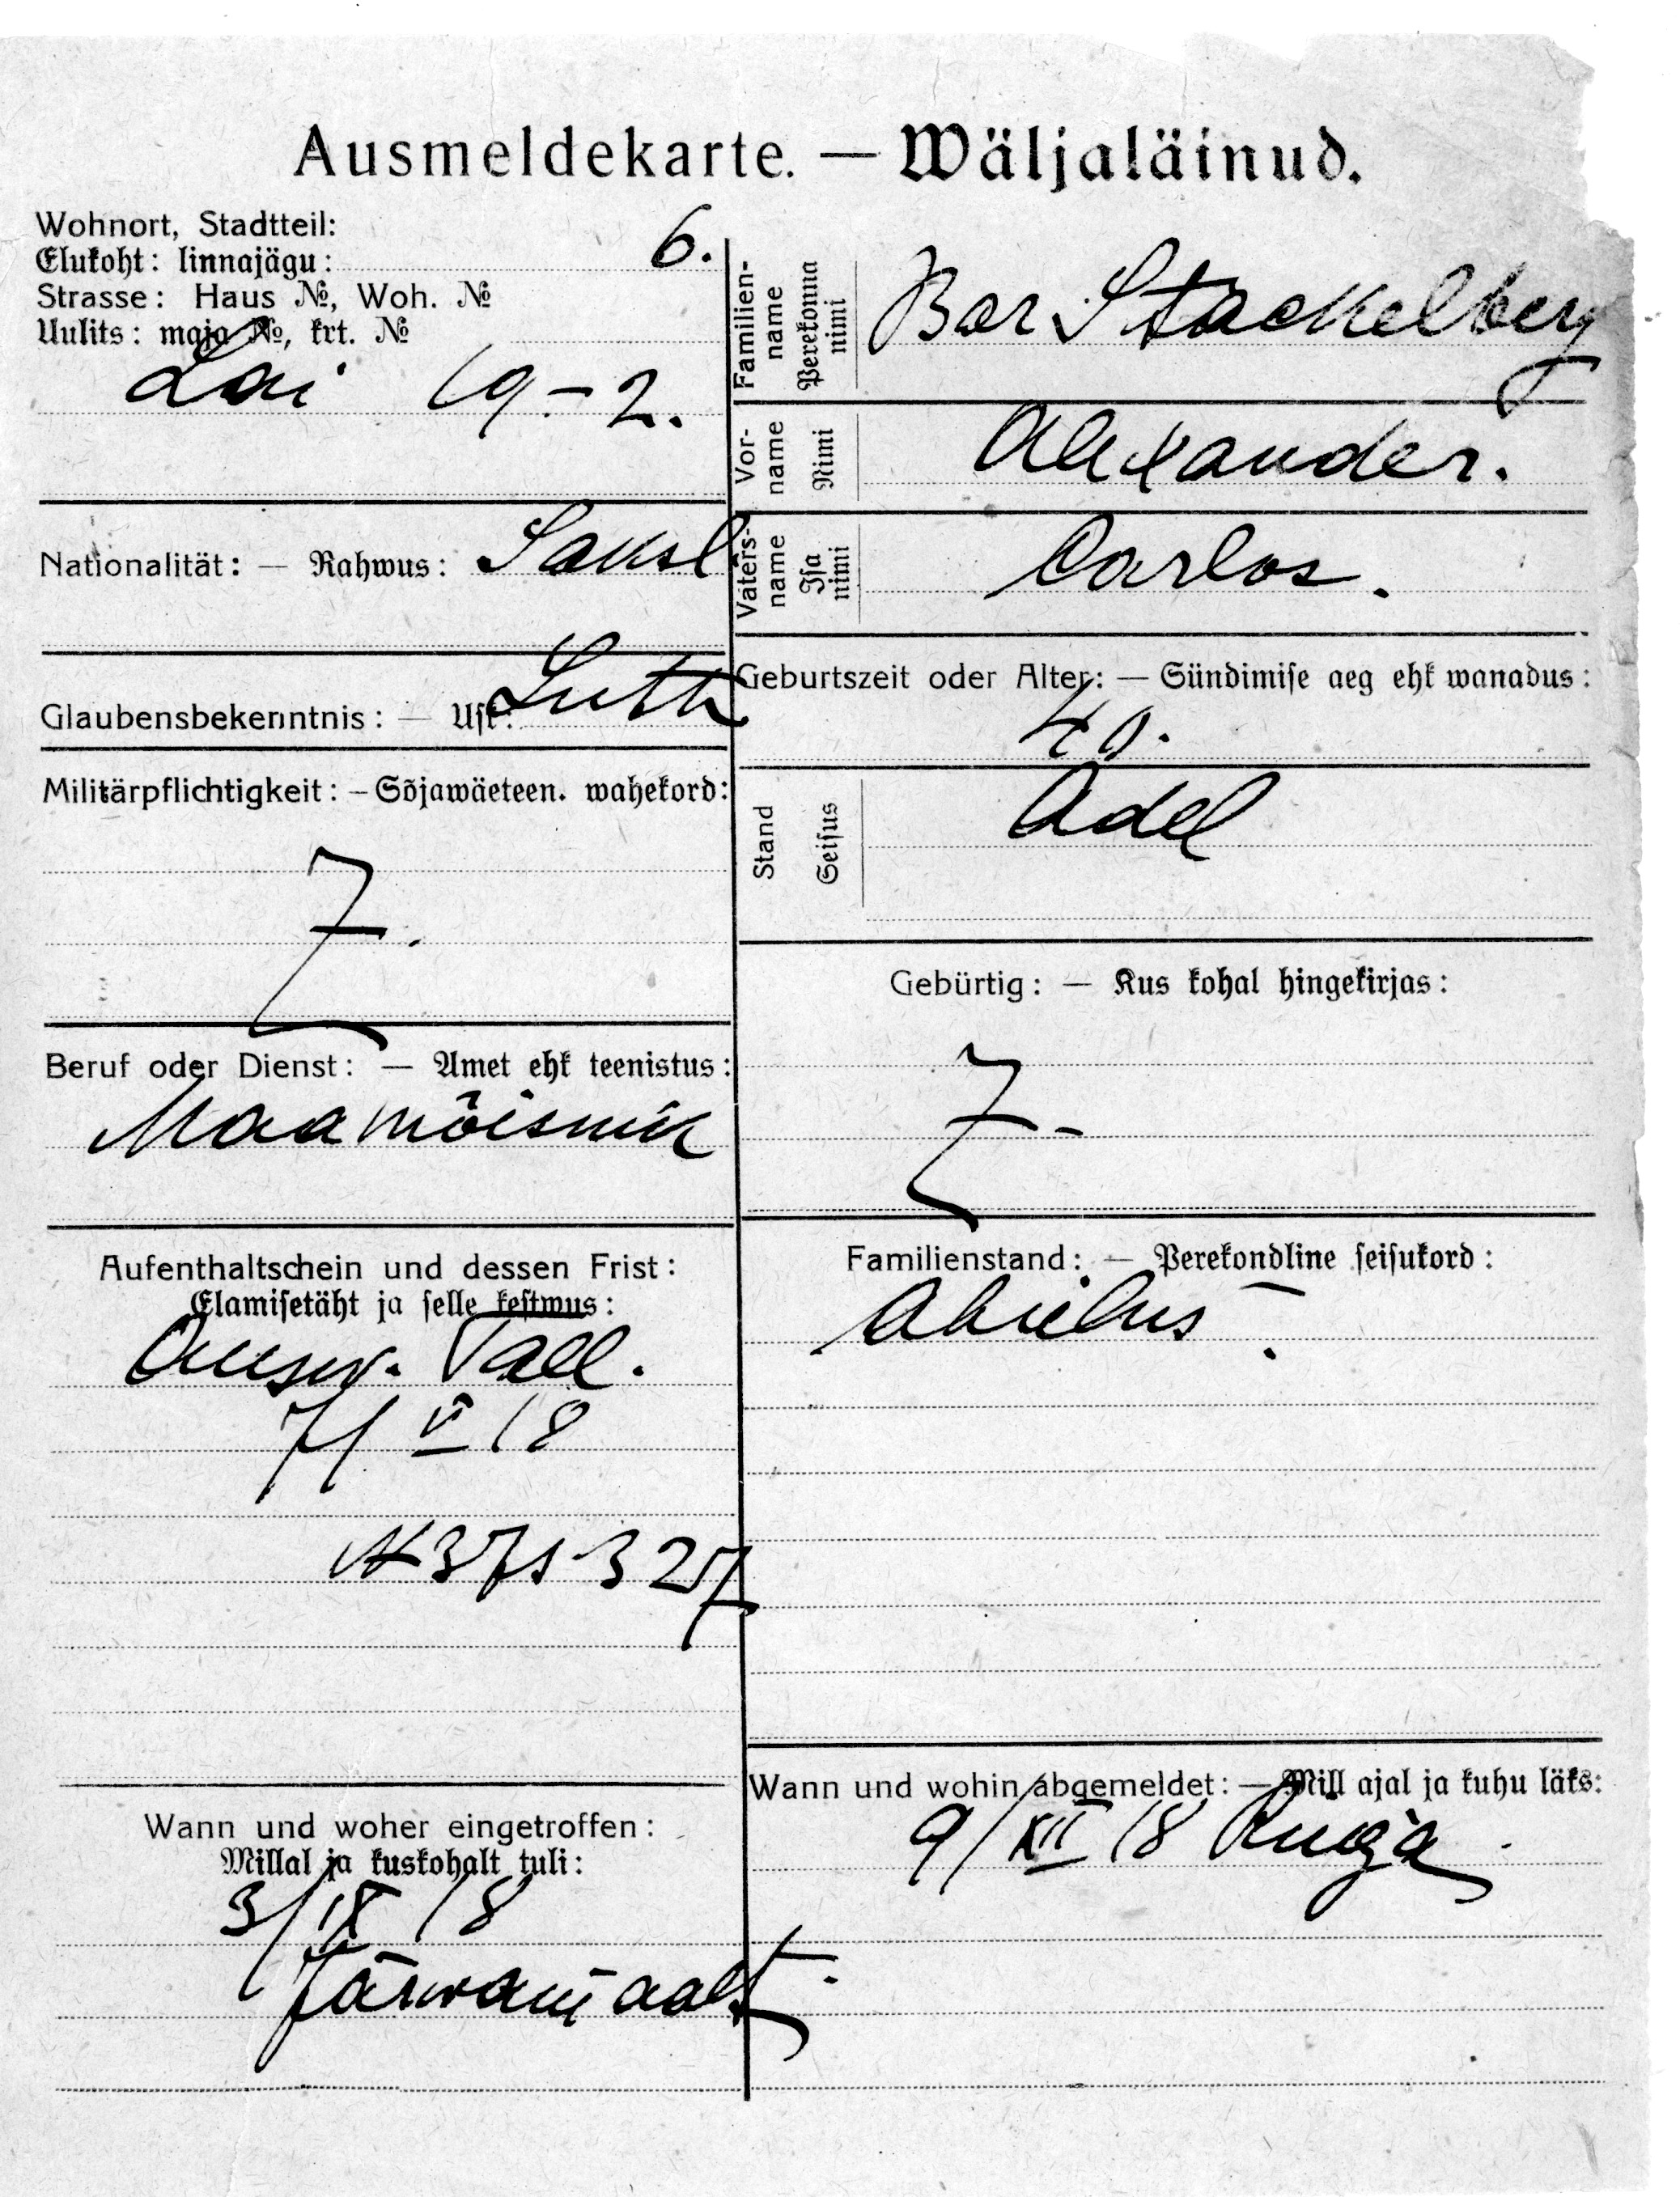 Ausmeldekarte. — Wäljaläinud.
Wohnort, Stadtteil:
Elukoht: linnajägu: 6.
Strasse: Haus №, Woh. №
Uulits: maja №, krt. №
Lai 19 - 2.
Nationalität: — Rahwus: Saksl
Glaubensbekenntnis: — Usk: Luth
Militärpflichtigkeit: — Sõjawäeteen. wahekord:
Beruf oder Dienst: — Amet ehk teenistus:
Maamõisnik
Aufenthaltschein und dessen Frist:
Elamisetäht ja selle kestwus:
Ausw. Tall.
7/ V 18
Wann und woher eingetroffen:
Millal ja kuskohalt tuli:
3/IX 18
Järwamaalt.
Familienname
Perekonna nimi
Bar Stackelberg
Vorname
Nimi
Alexander.
Vatersname
Isa nimi
Carlos.
Geburtszeit oder Alter: — Sündimise aeg ehk wanadus:
Stand
Seisus
Adel
Gebürtig: — Kus kohal hingekirjas:
Familienstand: — Perekondline seisukord:
Abielus.
Wann und wohin abgemeldet: — Mill ajal ja kuhu läks:
9/XII 18 Riiga